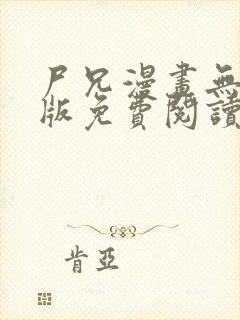 尸兄漫畫無
版免費閱讀
肯亞